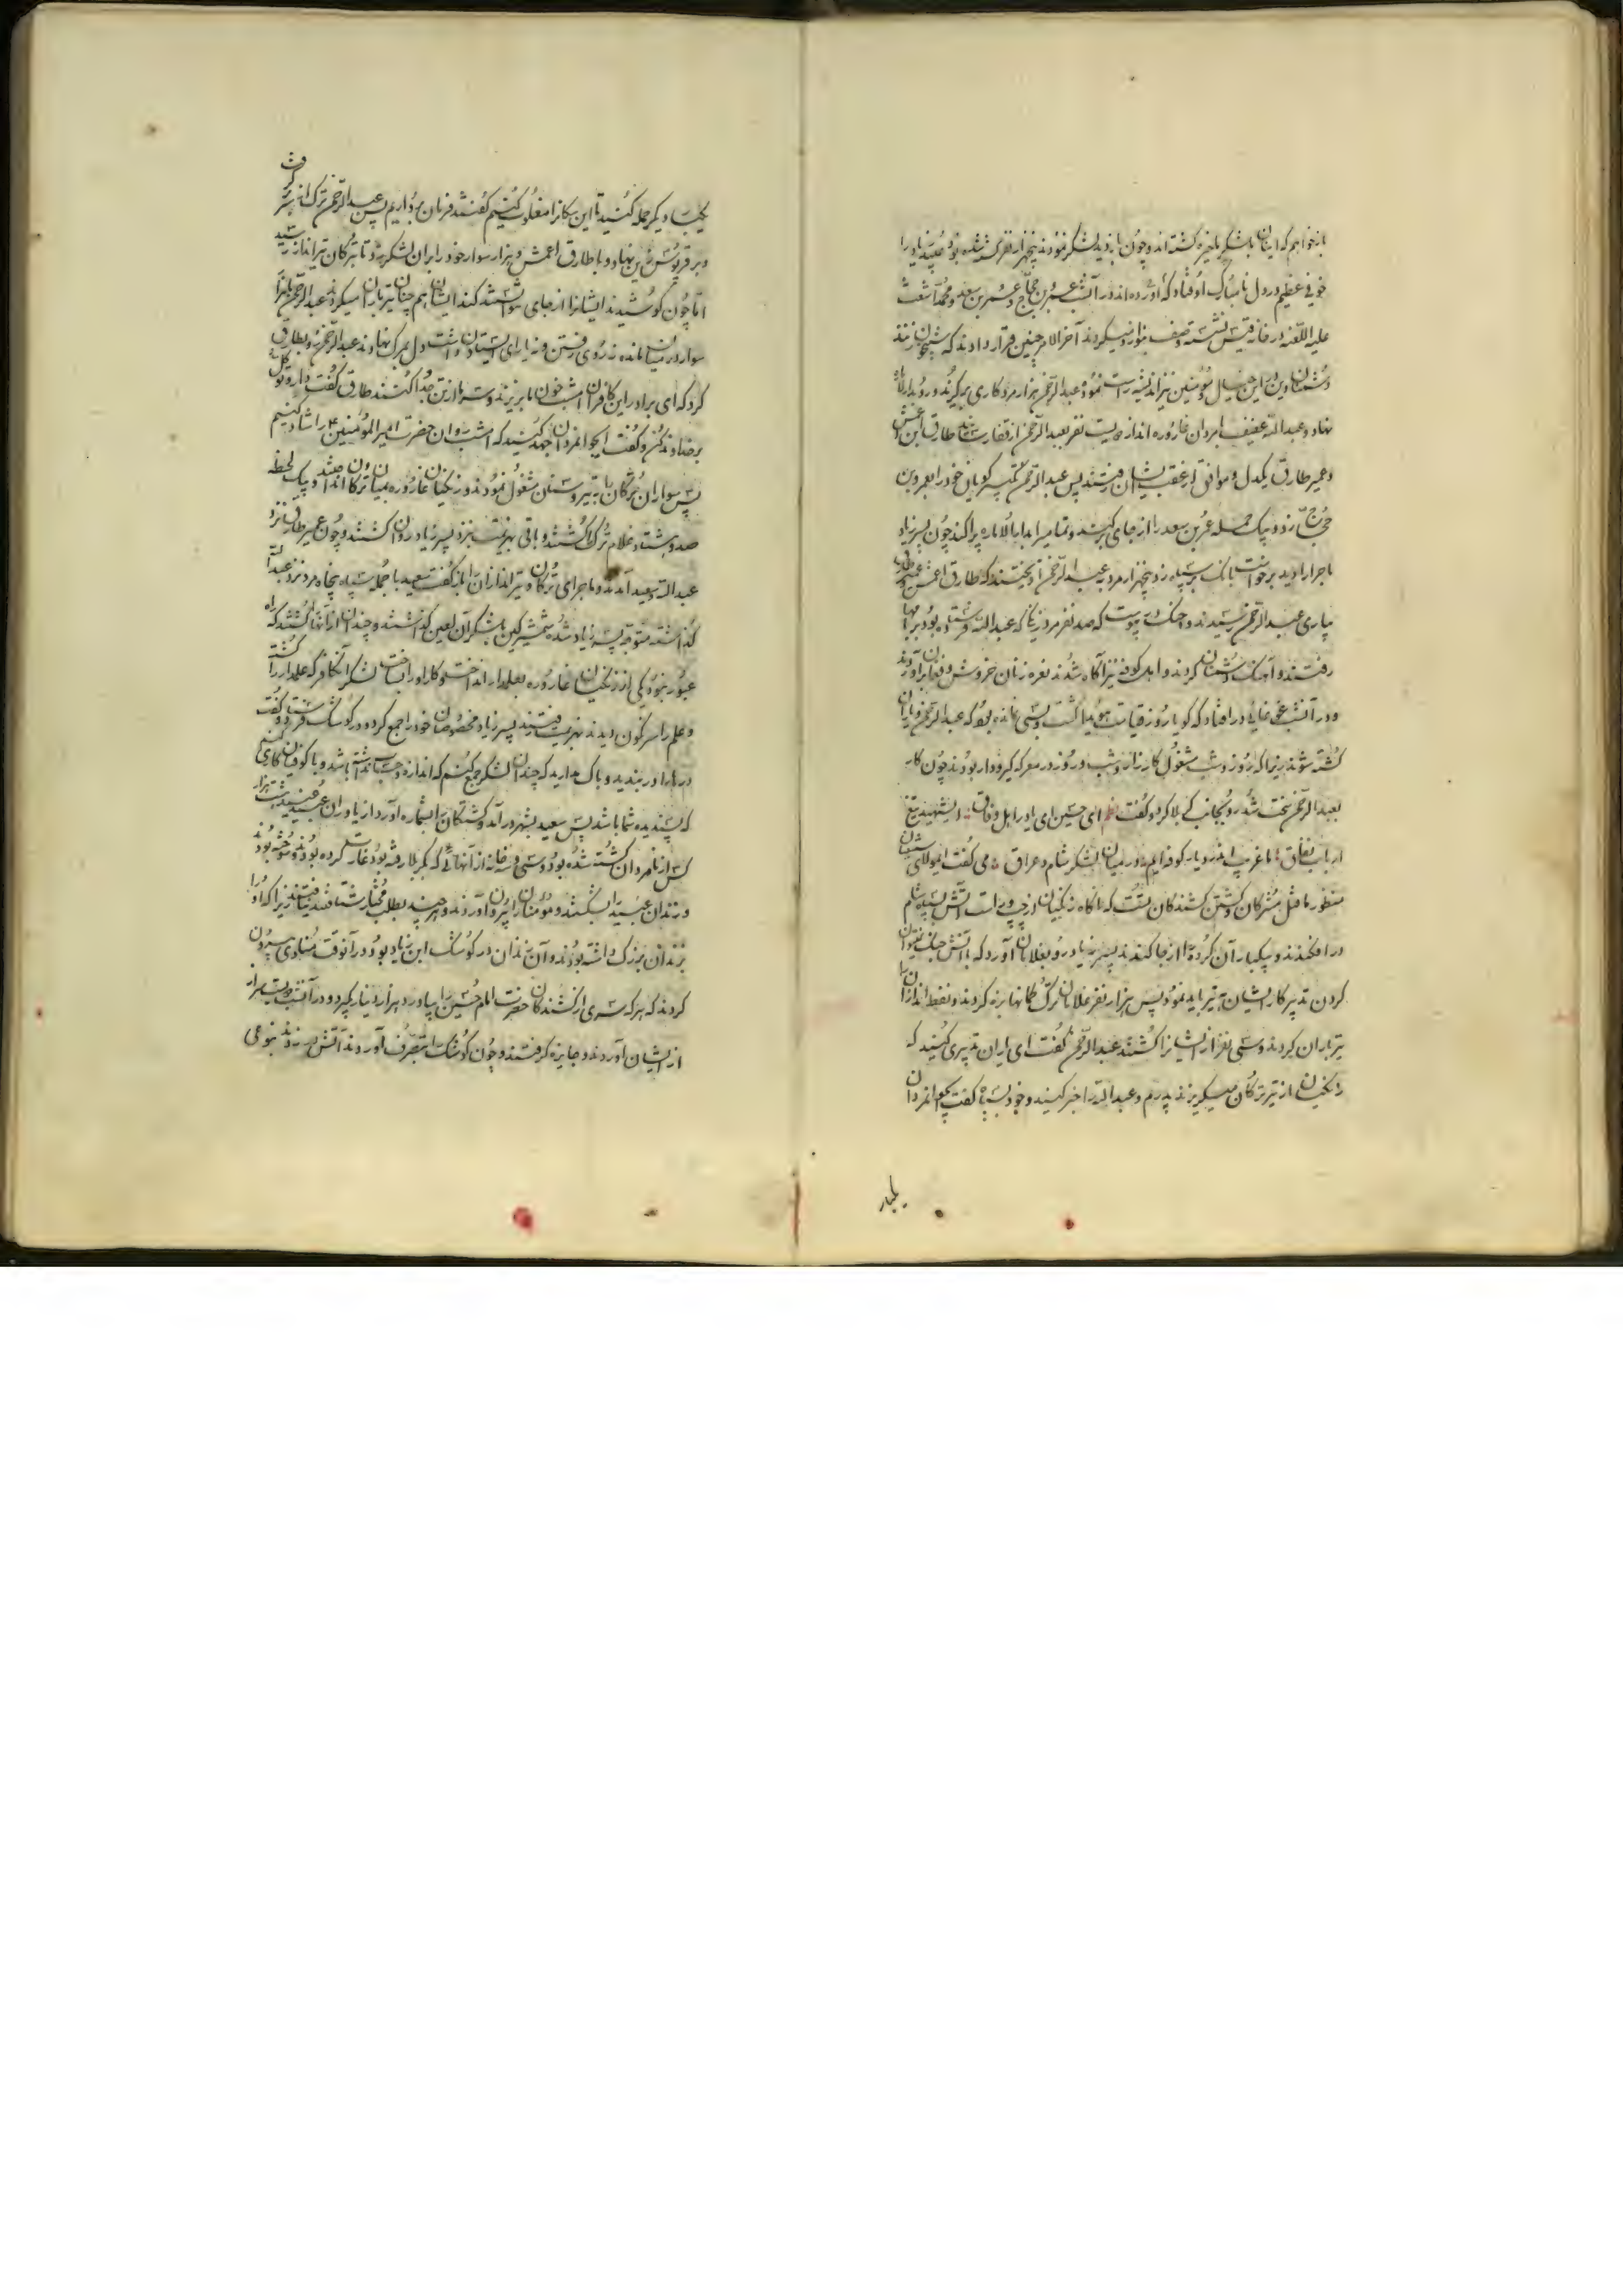 بازخواهم که اینان با لشکر ما خیره گشته‌اند و چون بازدید لشکر نمودند پنجهزار نفر کشته شده بود پسر زیاد را
خوفی عظیم در دل نامبارک او فتاد که آورده‌اند در آنشب عمر بن حجاج و عمر بن سعد و محمد اشعث
علیه اللعنه در خانه نشسته صف میکردند آخر الامر چنین قرار دادند که شبیخون زنند
دشمنان دین در این خیال و مؤمنین نیز اندیشه راست نموده عبدالرحمن هزار مرد کاری برگیرد و رو براه
نهاد و عبدالله عفیف با مردان غاروره انداز دویست نفر بعبدالرحمن از قفا طارق ابن اعمش
و عمیر طارق یکدل و موافق از عقب ایشان رفتند پس عبدالرحمن تکبیر گویان خود را بعمرو بن
حجاج زد و بیک حمله عمر بن سعد را از جای برکند و تمامی را پراکند چون پسر زیاد
ماجرا را دید برخواست بانک بر سپاه زد پنجهزار مرد به عبدالرحمن آویختند که طارق اعمش و عمیر طارق
بیاری عبدالرحمن رسیدند و جنگ در پیوست که صد نفر مرد زنگی که عبدالله فرستاده بود بر بامها
رفتند و آهنگ دشمنان کردند و اهل کوفه نیز آگاه شدند نعره زنان خروش و فغان برآوردند
و در آنشب غوغائی در افتاد که گویا روز قیامت هویدا گشت و بسی نمانده بود که عبدالرحمن و یاران
کشته شوند زیرا که روز و شب مشغول کارزار و شب و روز در معرکه گیر و دار بودند چون کار
بعبدالرحمن سخت شد رو بجانب کربلا کرد و گفت نظم ای حسین ای یادر اهل وفاق : ای شهید تیغ
ارباب نفاق : ما غریب اندر دیار کوفه‌ایم : در میان لشکر شام و عراق : می گفت ای مولای شیعیان
منظور ما قتل مشرکان و کشتن کشندگان تست که ناگاه زنگیان از چپ و راست آتش بسپاه شام
در افکندند و بیکبار آن گروه را از جا کندند پسر زیاد رو بغلامان آورد که با آتش جنگ نتوان
کردن تدبیر کار ایشان به تیر باید نمود پس هزار نفر غلامان ترک کمانها بزه کردند و نفط اندازان را
تیرباران کردند و سی نفر از ایشانرا کشتند عبدالرحمن گفت ای یاران تدبیری کنید که
زنگیان از تیر ترکان میگریزند پدرم و عبدالله را خبر کنید و خود بسپاه گفت ای جوانمردان
یکبار
یکبار دیگر حمله کنید تا این سگانرا مغلوب کنیم گفتند فرمان برداریم پس عبدالرحمن ترک از سر برگرفت
و بر قربوس زین نهاد و با طارق اعمش و هزار سوار خود را بر آن لشکر زد تا بترکان تیرانداز رسید
اما چون کوشیدند ایشانرا از جای نتوانستند کند ایشان هم چنان تیرباران میکردند عبدالرحمن با هزار
سوار در میان مانده نه روی رفتن و نه یارای ایستادن داشت دل بمرک نهادند عبدالرحمن رو بطارق
کرد که ای برادر این کافران امشب خون ما بریزند و سر ما از تن جدا کنند طارق گفت توکل
برضای خداوند کن و گفت ای جوانمردان جهد کنید که امشب روان حضرت امیرالمؤمنین ع را شاد کنیم
پس سواران ترکان را به تیر و سنان مشغول نمودند و زنگیان غاروره بمیان ترکان انداختند و بیک لحظه
صد و هشتاد غلام ترک را کشتند و باقی بهزیمت بنزد پسر زیاد روان گشتند و چون عمیر طارق نزد
عبدالله و سعید آمدند و ماجرای ترکان و تیراندازان را بازگفت سعید با جمله سپاه پنجاه مرد نزد عبدالله
گذاشته متوجه پسر زیاد شده شمشیر کین بلشکر آن لعین گذاشتند و چندان از آنها کشتند که راه
عبور نبود یکی از زنگیان غاروره بعلمدار انداخت و کار او را بساخت لشکر آن کافر که علمدار را کشته
و علم را سرنگون دیدند بهزیمت رفتند پسر زیاد مخصوصان خود را جمع کرد و در کوشک رفت و گفت
درها را در بندید و باک مدارید که چندان لشکر جمع کنم که اندازه و حساب نداشته باشد و با کوفیان کاری کنم
که پسندیده شما باشد پس سعید بشهر در آمد و کشتگان را بشماره آورد از یاوران عبید هشت هزار
کس از نامردان کشته شده بود و سی و سه خانه از آنهائی که بکربلا رفته بود غارت کرده بودند و سوخته بودند
و زندان عبید را بشکستند و مؤمنان را بیرون آوردند و هر چند بطلب مختار شتافتند نیافتند زیرا که او را
بزندان بزرگ داشته بودند و آن زندان در کوشک ابن زیاد بود در آنوقت منادی بیرون
کردند که هر که سری از کشندگان حضرت امام حسین را بیاورد هزار دینار بگیرد و در آنشب دویست سر از
از ایشان آوردند و جایزه گرفتند و چون کوشک را بتصرف آوردند آتش در زدند بنوعی